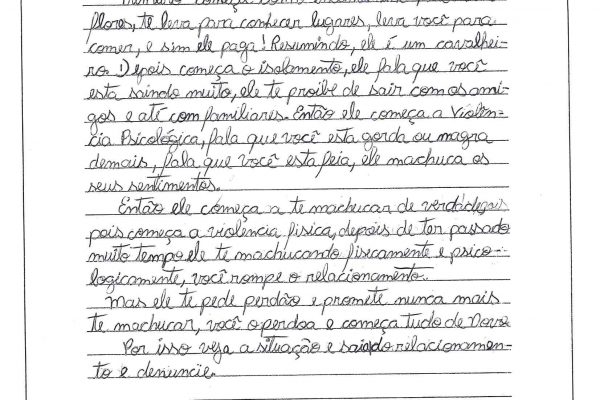 flores, te leva para conhecer lugares, leva você para
comer, e sim ele paga! Resumindo, ele é um cavalhei-
ro. Depois começa o isolamento, ele fala que você
esta saindo muito, ele te proibe de sair com os ami-
gos e até com familiares. Então ele começa a Violên-
cia Psicológica, fala que você esta gorda ou magra
demais, fala que você esta feia, ele machuca os
seus sentimentos.
Então ele começa a te machucar de verdade,
pois começa a violência fisica, depois de ter passado
muito tempo ele te machucando fisicamente e psico-
logicamente, você rompe o relacionamento.
Mas ele te pede perdão e promete nunca mais
te machucar, você o perdoa e começa tudo de Novo.
Por isso veja a situação e saia do relacionamen-
to e denuncie.